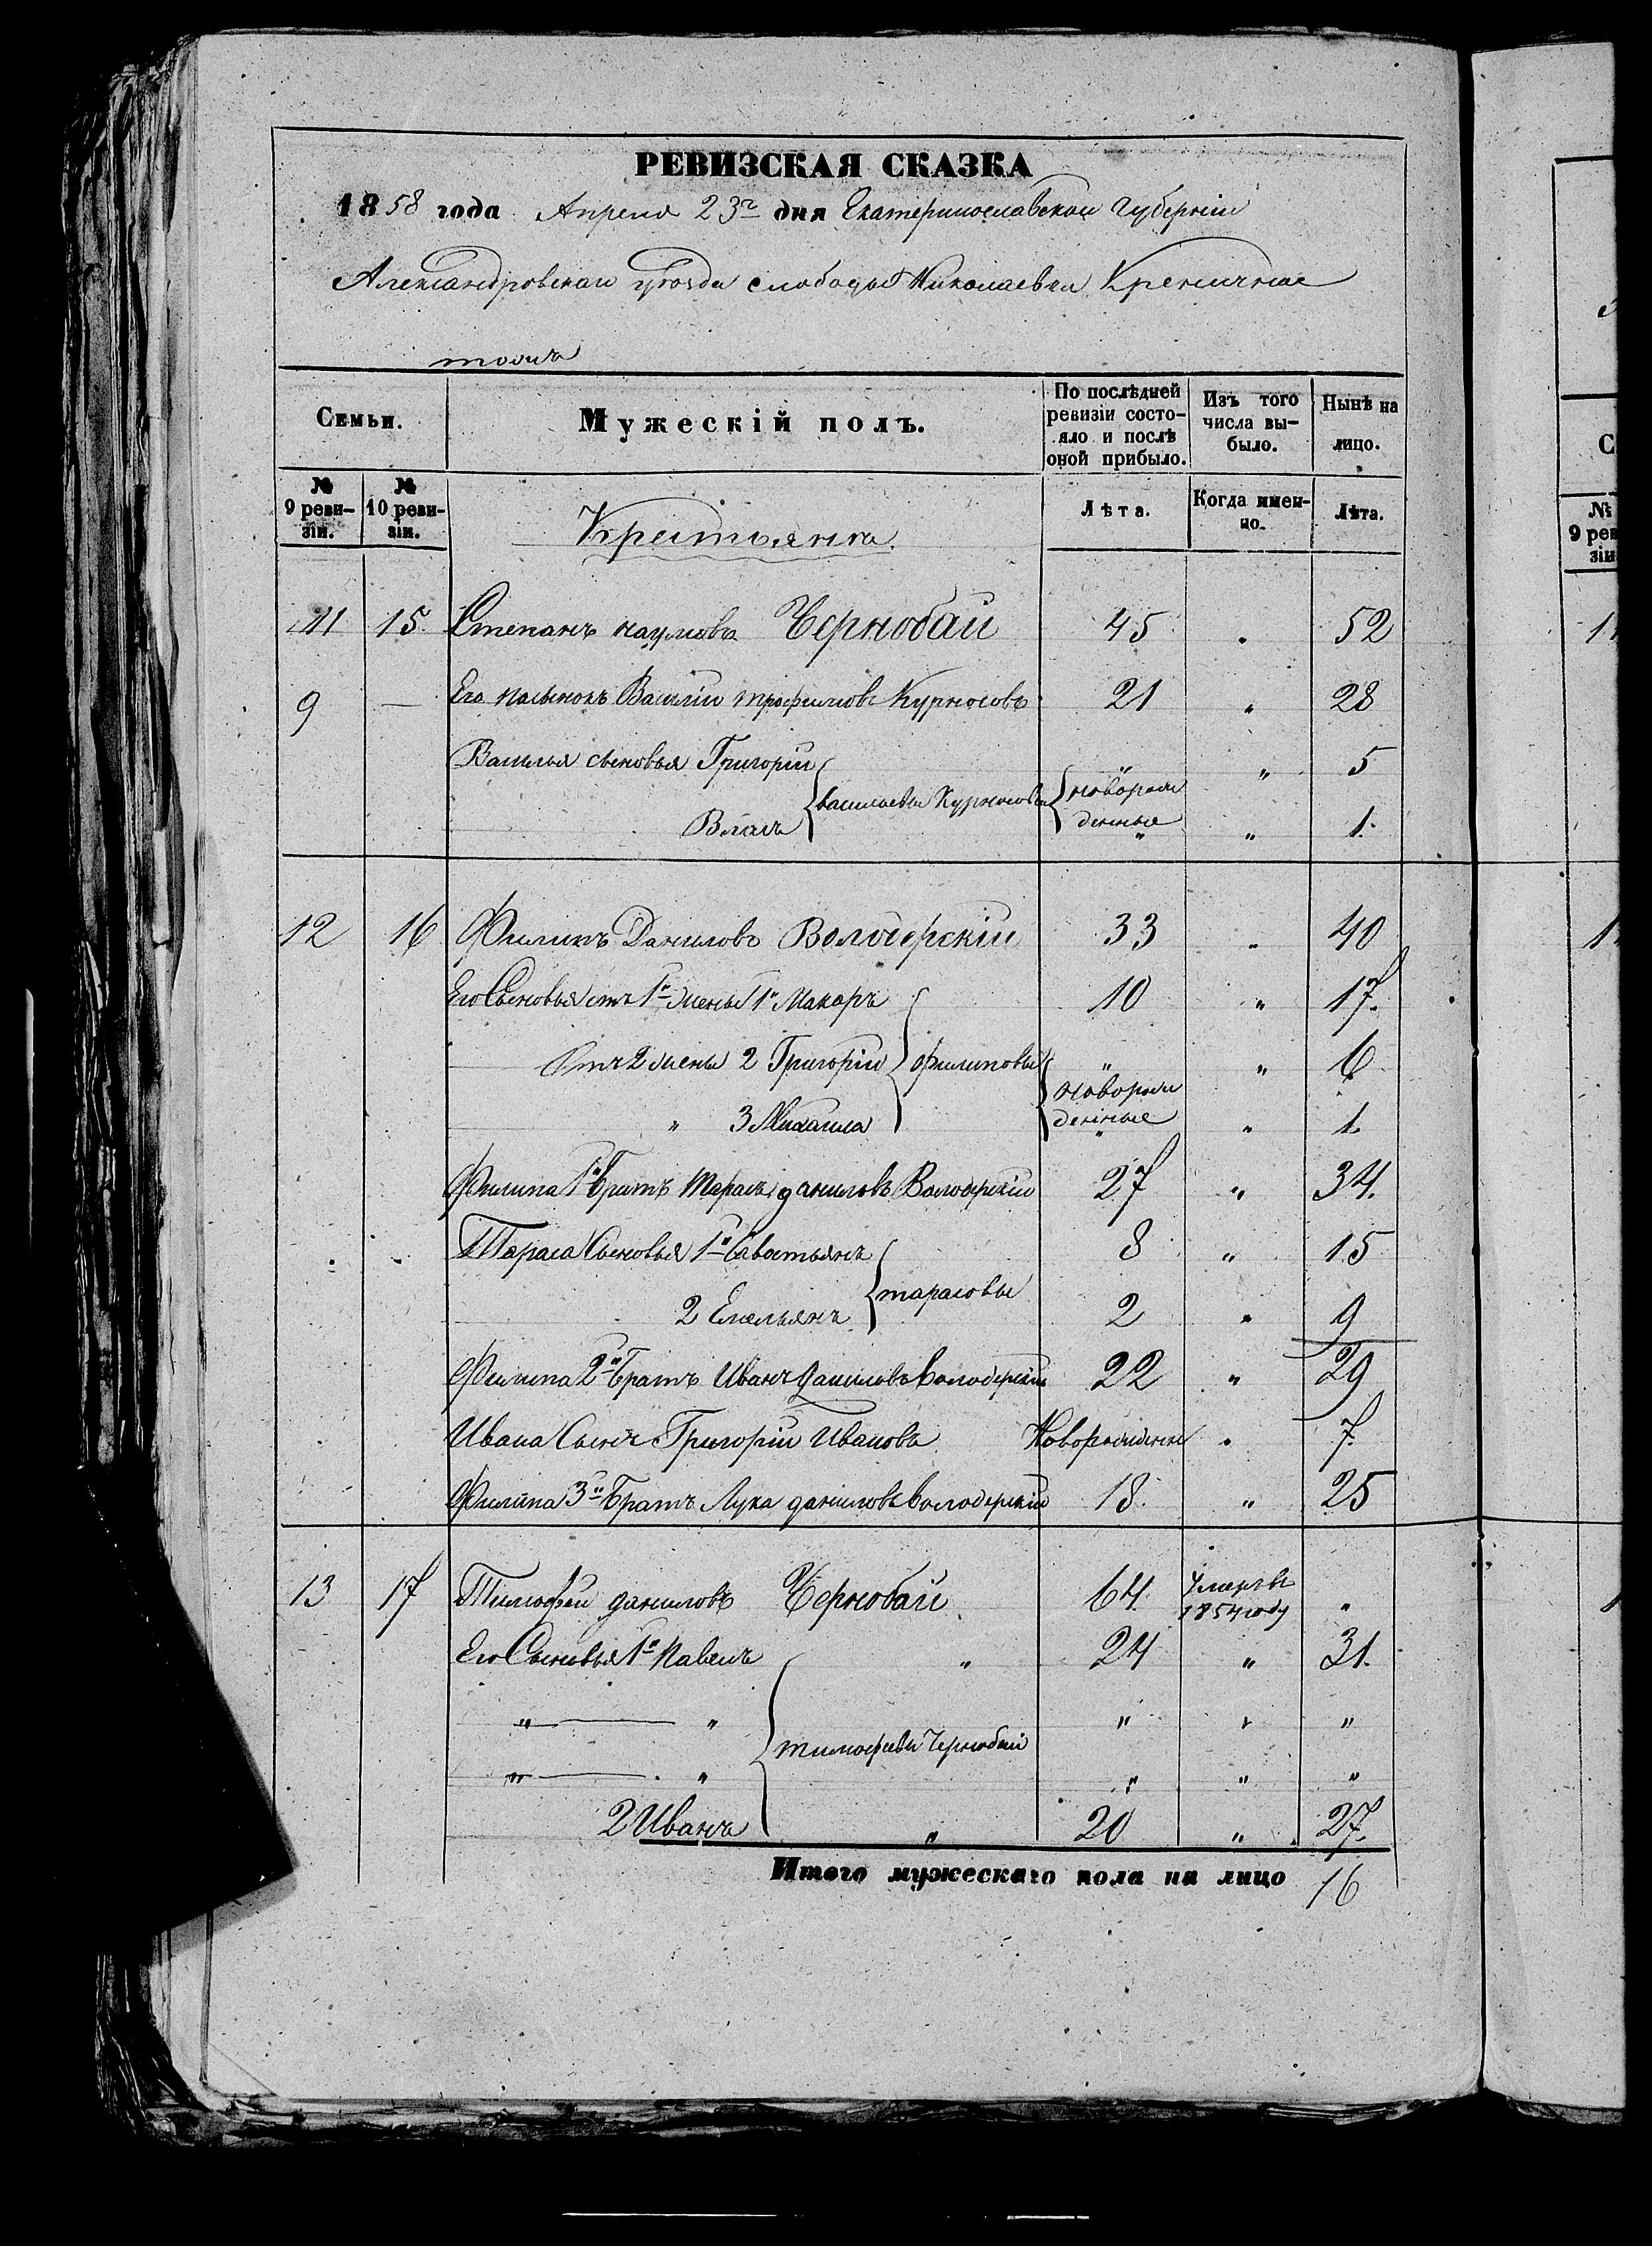 РЕВИЗСКАЯ СКАЗКА
1858 года Апреля 23го дня Екатеринославской Губерніи
Александровскаго уѣзда слободы Николаевки Креничное
тожъ
Семьи. Мужескій полъ. По послѣдней ревизіи состояло и послѣ оной прибыло. Изъ того числа выбыло. Нынѣ на лицо.
№ 9 ревизіи. № 10 ревизіи. Крестьяне. Лѣта. Когда именно. Лѣта.
11 15 Степанъ наумовъ Чернобай 45 " 52
9 — Его пасынокъ Василій трофимовъ Курносовъ 21 " 28
Василья сыновья Григорій " " 5
васильевы Курносовы новорожденные
Власъ " " 1.
12 16 Филипъ Даниловъ Володерскій 33 " 40
Его Сыновья отъ 1й жены 1й Макаръ 10 " 17.
Отъ 2 жены 2 Григорій филиповы " " 6
новорожденные
" 3 Михаила " " 1.
Филипа 1й Братъ Тарасъ даниловъ Володерскій 27 " 34.
Тараса Сыновья 1й Савостьянъ 8 " 15
тарасовы
2 Емельянъ 2 " 9
Филипа 2й Братъ Иванъ Даниловъ Володерскій 22 " 29
Ивана Сынъ Григорій Ивановъ Новорожденн " 7.
Филипа 3й Братъ Лука даниловъ Володерскій 18 " 25
13 17 Тимофей даниловъ Чернобай 64. Умеръ въ 1854 году "
Его Сыновья 1й Павелъ " 24 " 31.
" — " " " "
тимофеевы Чернобаи
" — " " " "
2 Иванъ " 20 " 27.
Итого мужескаго пола на лицо 16
№ 9 ре
зіи